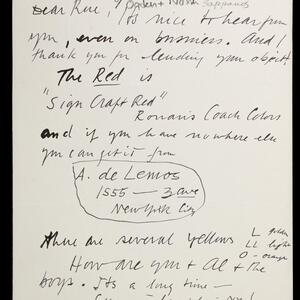 Dear Rue, it's nice to hear from
you, even on business. And I
thank you for lending your object.
The Red is
"Sign Craft Red"
Ronan's Coach Colors
and if you have nowhere else
you can get it from
A. de Lemos
1555 — 3 ave
New York City
there are several yellows L golden
LL light
O - orange
How are you + Al + the
boys. It's a long time —